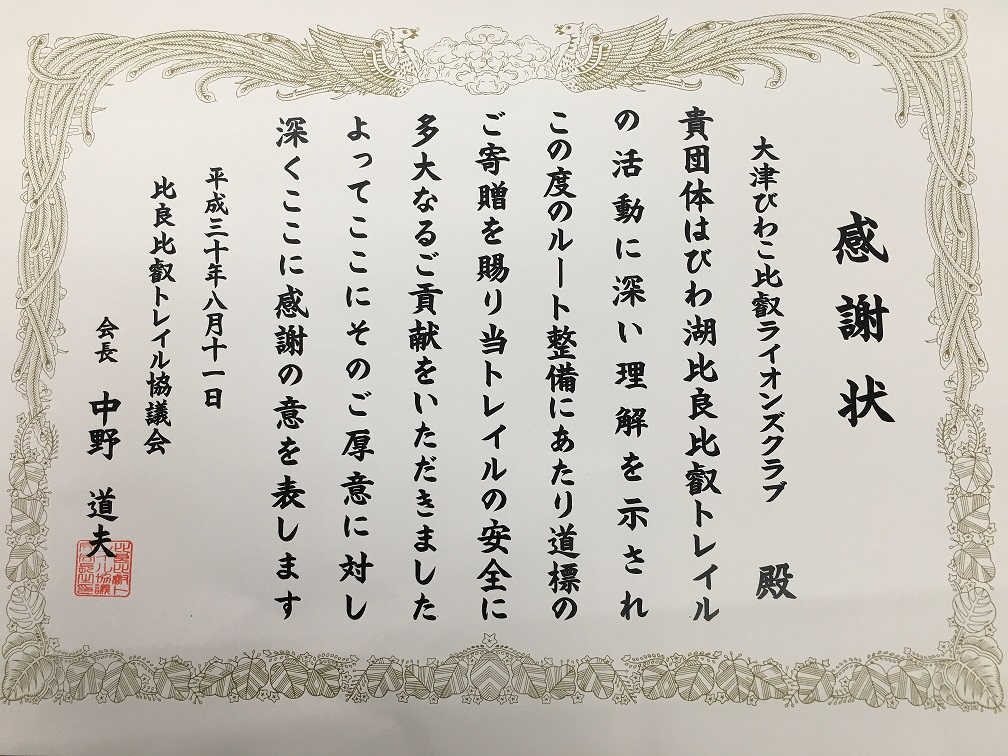 感謝状
大津びわこ比叡ライオンズクラブ 殿
貴団体はびわ湖比良比叡トレイル
の活動に深い理解を示され
この度のルート整備にあたり道標の
ご寄贈を賜り当トレイルの安全に
多大なるご貢献をいただきました
よってここにそのご厚意に対し
深くここに感謝の意を表します
平成三十年八月十一日
比良比叡トレイル協議会
会長 中野 道夫